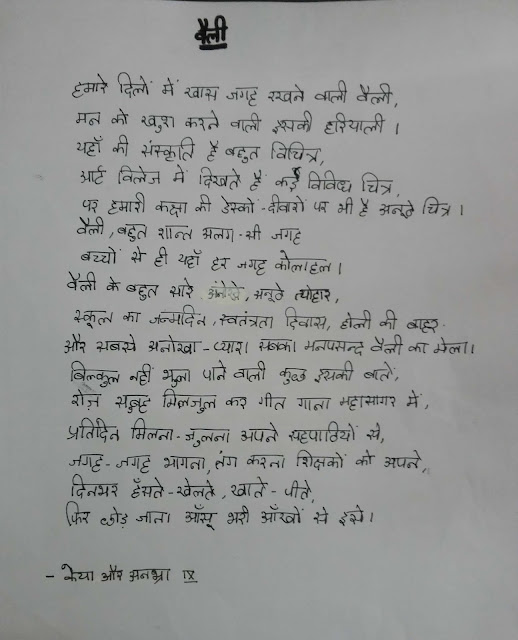 वैली
हमारे दिलों में खास जगह रखने वाली वैली,
मन को खुश करने वाली इसकी हरियाली ।
यहाँ की संस्कृति है बहुत विचित्र,
आर्ट विलेज में दिखते हैं कई विविध चित्र,
पर हमारी कक्षा की डेस्कों-दीवारों पर भी है अनूठे चित्र ।
वैली, बहुत शान्त अलग-सी जगह
बच्चों से ही यहाँ हर जगह कोलाहल ।
वैली के बहुत सारे अनोखे, अनूठे त्योहार,
स्कूल का जन्मदिन, स्वतंत्रता दिवस, होली की बाहर
और सबसे अनोखा-प्यारा सबका मनपसन्द वैली का मेला।
बिल्कुल नहीं भुला पाने वाली कुछ इसकी बातें,
रोज़ सुबह मिलजुल कर गीत गाना महासागर में,
प्रतिदिन मिलना-जुलना अपने सहपाठियों से,
जगह-जगह भागना, तंग करना शिक्षकों को अपने,
दिनभर हँसते-खेलते, खाते-पीते,
फिर छोड़ जाना आँसू भरी आँखों से इसे।
- केया और अनभ्रा IX